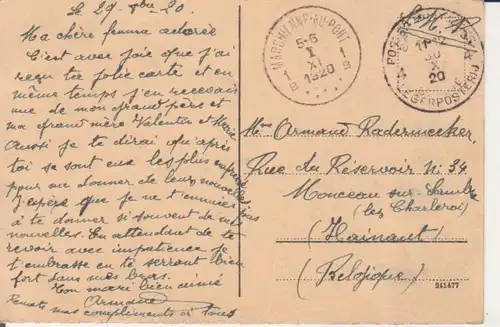 Le 29-8bre 20.
Ma chère femme adorée
C'est avec joie que j'ai
reçu ta jolie carte et en
même temps j'en recevais
une de mon grand père et
ma grand mère Valentin et Marie
Aussi je te dirai qu'après
toi se sont eux les plus
pour me donner de leurs nouvelles
J'espère que je ne t'ennuies pas
à te donner si souvent de mes
nouvelles. En attendant de te
revoir avec impatience je
t'embrasse en te serrant bien
fort dans mes bras.
Ton mari bien aimé
Armand
Remets mes compliments à tous
MARCHIENNE-AU-PONT
1 B 5-6 I XI 1920 1 B
S. M.
11-
XI
20
LEGERPOSTERIJ
Mme Armand Radermecker,
Rue du Réservoir N: 34
Monceau-sur-Sambre
(lez Charleroi)
(Hainaut)
(Belgique)
241477